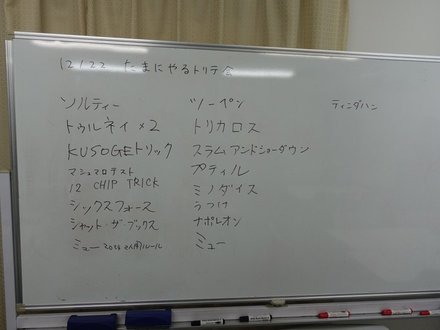 12/22 たまにやるトリテ会
ソルティー
トゥルネイ×2
KUSOGEトリック
マシュマロテスト
12 CHIP TRICK
シックスフォース
シャット・ザ・ブックス
ミュー 2人用ルール
ツーペン
トリカロス
スラムアンドショーダウン
プティル
ミノダイス
うつけ
ナポレオン
ミュー
ティニダハン